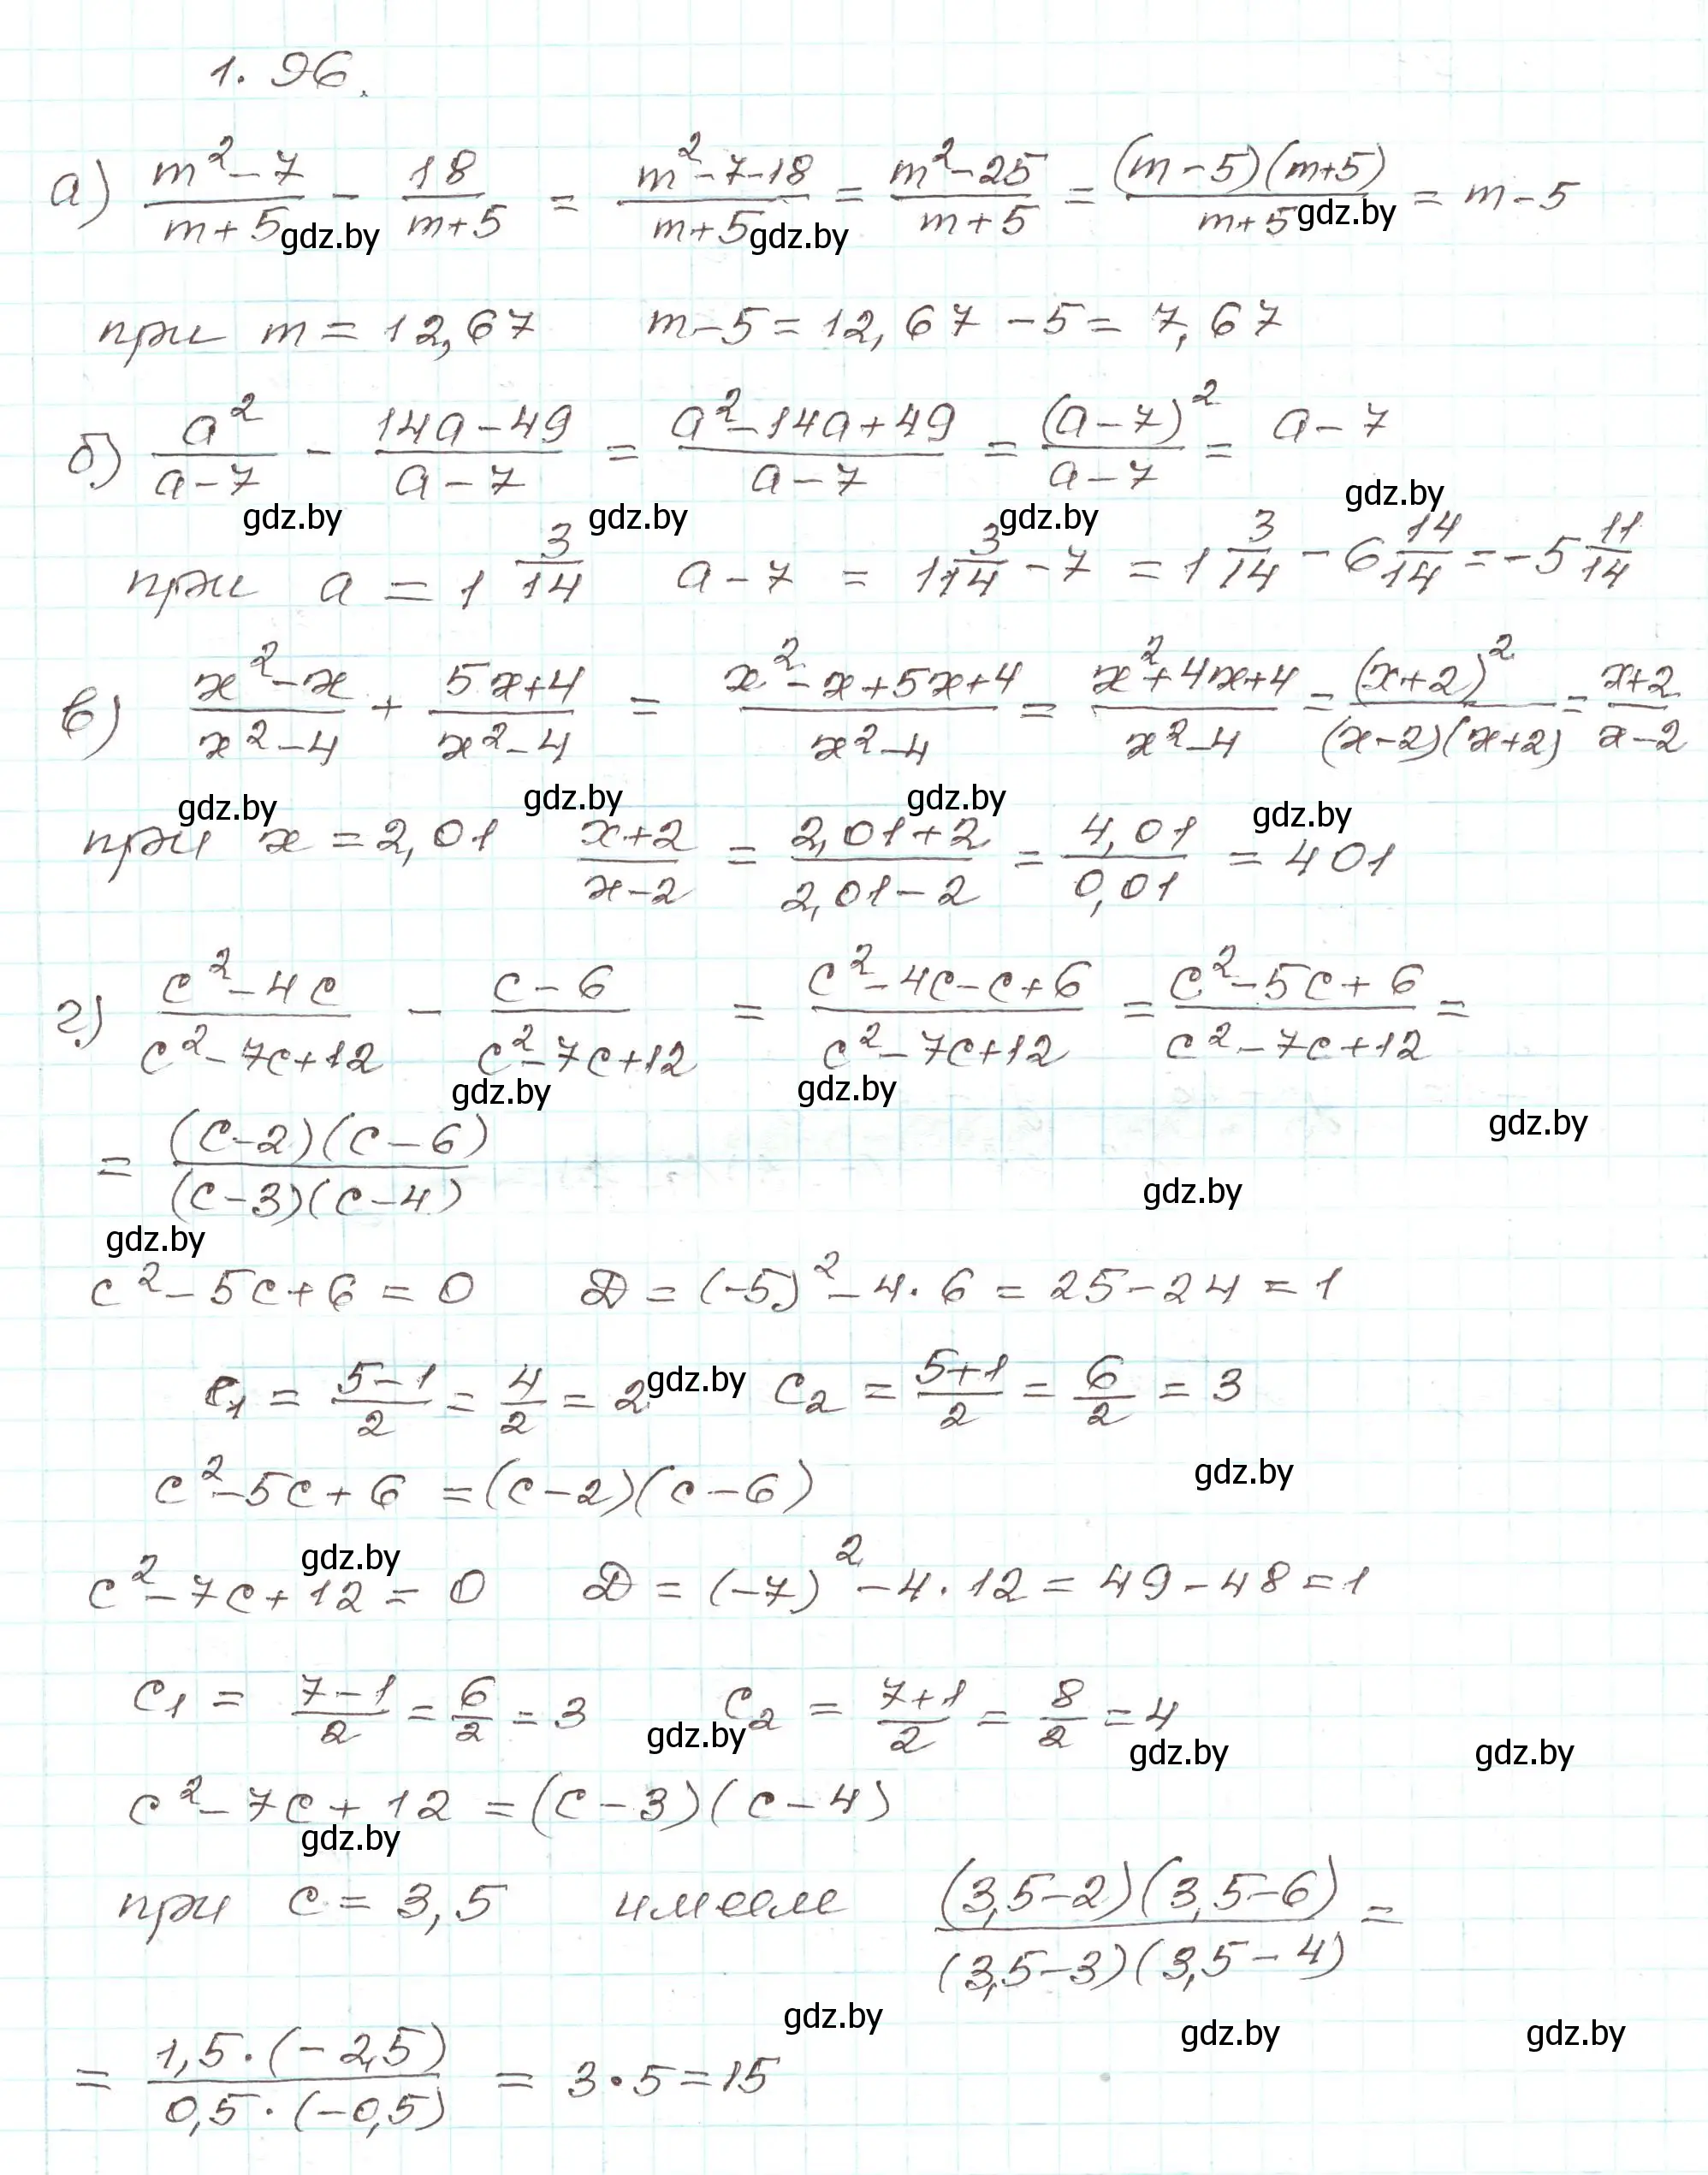 1. 96.
а) (m²-7)/(m+5) - 18/(m+5) = (m²-7-18)/(m+5) = (m²-25)/(m+5) = ((m-5)(m+5))/(m+5) = m-5
gdz.by gdz.by gdz.by
при m = 12,67 m-5 = 12,67 - 5 = 7,67
б) a²/(a-7) - (14a-49)/(a-7) = (a²-14a+49)/(a-7) = (a-7)²/(a-7) = a-7
gdz.by gdz.by gdz.by gdz.by
при a = 1 3/14 a-7 = 1 3/14 - 7 = 1 3/14 - 6 14/14 = -5 11/14
в) (x²-x)/(x²-4) + (5x+4)/(x²-4) = (x²-x+5x+4)/(x²-4) = (x²+4x+4)/(x²-4) = (x+2)²/((x-2)(x+2)) = (x+2)/(x-2)
gdz.by gdz.by gdz.by gdz.by
при x = 2,01 (x+2)/(x-2) = (2,01+2)/(2,01-2) = 4,01/0,01 = 401
г) (c²-4c)/(c²-7c+12) - (c-6)/(c²-7c+12) = (c²-4c-c+6)/(c²-7c+12) = (c²-5c+6)/(c²-7c+12) =
gdz.by gdz.by gdz.by
= ((c-2)(c-6))/((c-3)(c-4))
gdz.by gdz.by
c²-5c+6 = 0 D = (-5)²-4·6 = 25-24 = 1
c₁ = (5-1)/2 = 4/2 = 2 gdz.by c₂ = (5+1)/2 = 6/2 = 3
c²-5c+6 = (c-2)(c-6) gdz.by
gdz.by
c²-7c+12 = 0 D = (-7)²-4·12 = 49-48 = 1
c₁ = (7-1)/2 = 6/2 = 3 c₂ = (7+1)/2 = 8/2 = 4
gdz.by gdz.by gdz.by
c²-7c+12 = (c-3)(c-4)
gdz.by
при c = 3,5 имеем ((3,5-2)(3,5-6))/((3,5-3)(3,5-4)) =
gdz.by gdz.by gdz.by
= (1,5·(-2,5))/(0,5·(-0,5)) = 3·5 = 15